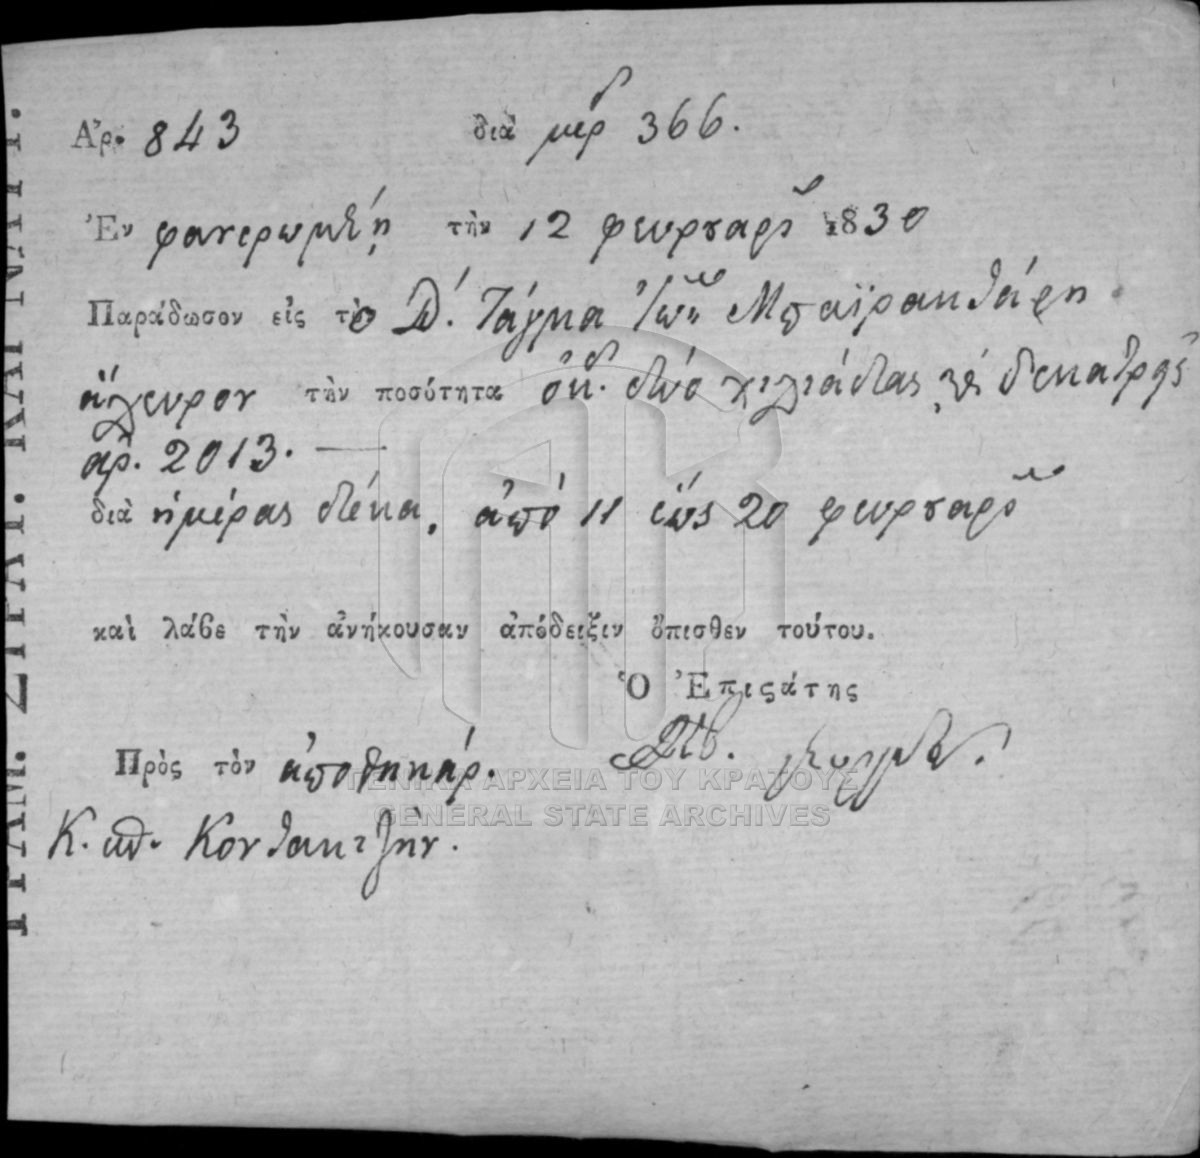 Ἀρ. 843 διὰ μερδ 366.
Ἐν φανερωμένῃ τὴν 12 φευρουαρ 1830
Παράδωσον εἰς τὸ Δ΄. Τάγμα Ἰω Μπαϊρακτάρη
ἄλευρον τὴν ποσότητα ὀκ. δύο χιλιάδας καὶ δεκατρεῖς
ἀρ. 2013. —
διὰ ἡμέρας δέκα, ἀπὸ 11 ἕως 20 φευρουαρ
καὶ λάβε τὴν ἀνήκουσαν ἀπόδειξιν ὄπισθεν τούτου.
Ὁ Ἐπιϛάτης
Πρὸς τὸν ἀποθηκάρ.
Κ. απ. Κοντακτζὴν.
ΓΕΝΙΚΑ ΑΡΧΕΙΑ ΤΟΥ ΚΡΑΤΟΥΣ
GENERAL STATE ARCHIVES